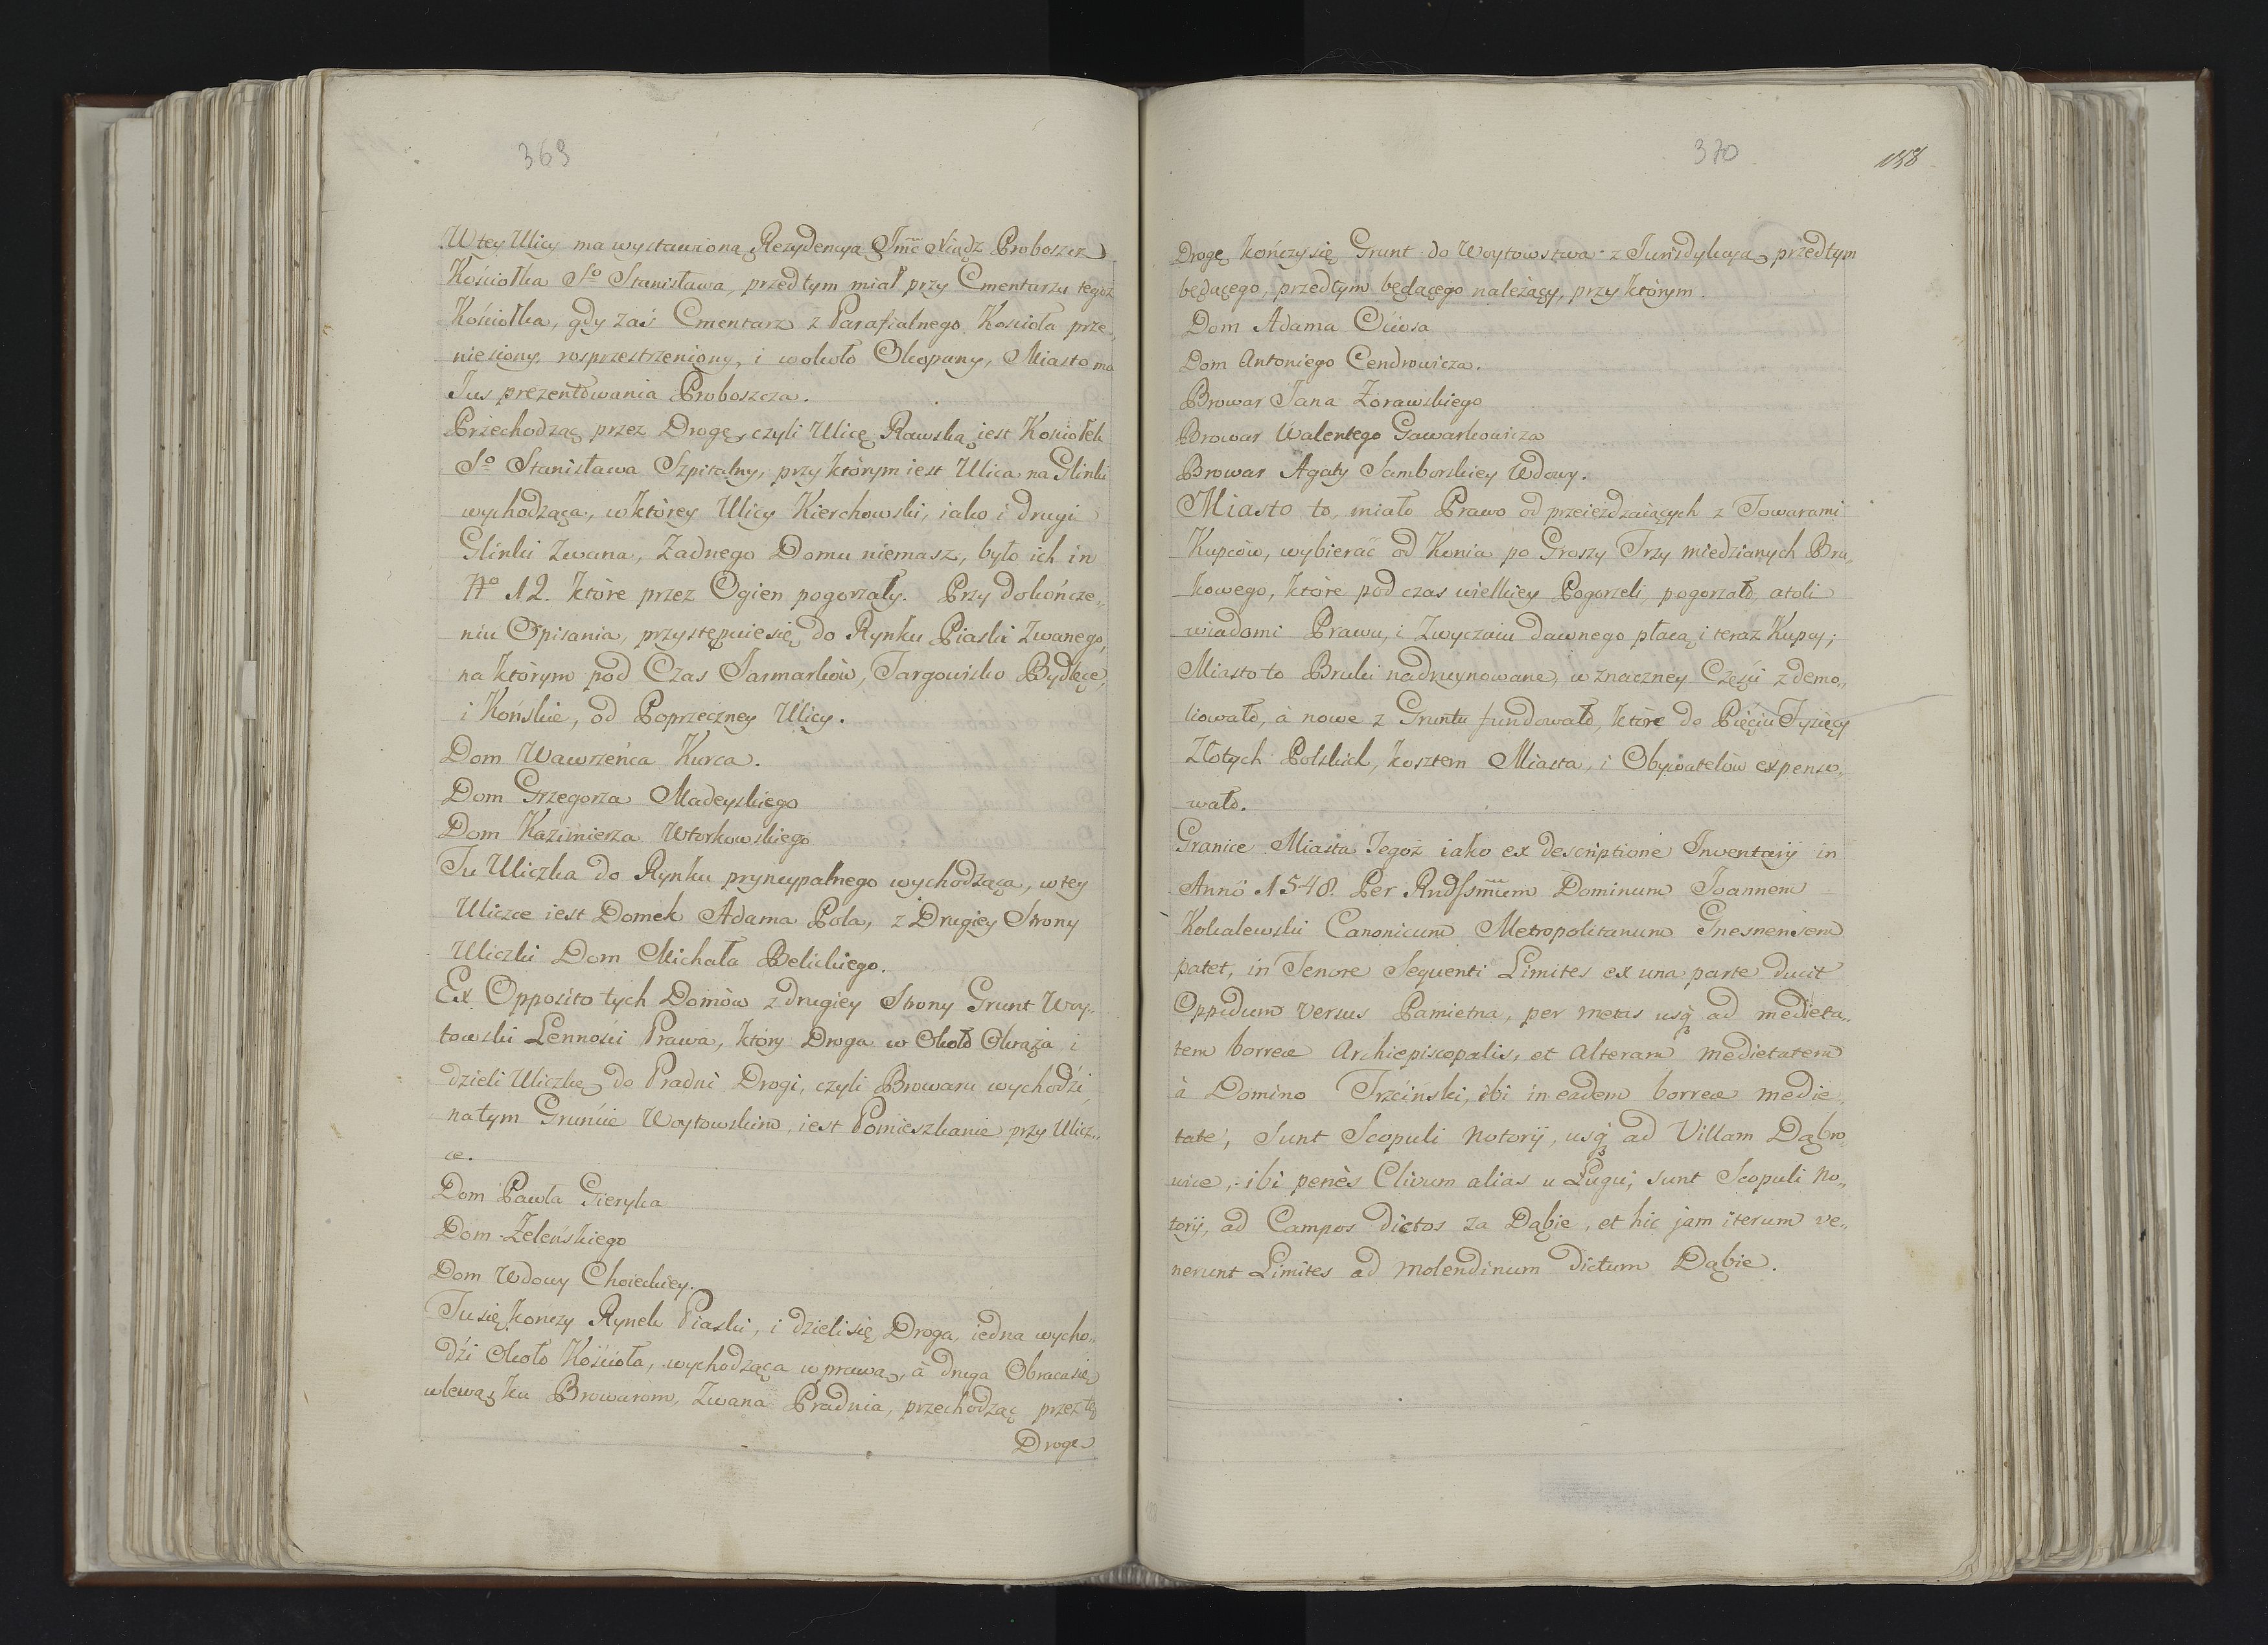 369
W tey Ulicy ma wystawioną Rezydencyą Jmć Xiądz Proboszcz
Kościołka So Stanisława, przedtym miał przy Cmentarzu tegoż
Kościołka, gdy zaś Cmentarz z Parafialnego Kościoła prze„
niesiony, rosprzestrzeniony, i wokoło Okopany, Miasto ma
Jus prezentowania Proboszcza.
Przechodząc przez Drogę, czyli Ulicę Rawską iest Kościołek
So Stanisława Szpitalny, przy którym iest Ulica na Glinki
wychodząca, w którey Ulicy Kierchowski, iako i drugi
Glinki Zwana, Żadnego Domu niemasz, było ich in
No 12. które przez Ogien pogorzały. Przy dokończe„
niu Opisania, przystępuie się do Rynku Piaski Zwanego,
na którym pod Czas Jarmarków, Targowisko Bydlęce,
i Końskie, od Poprzeczney Ulicy.
Dom Wawrzeńca Kurca.
Dom Grzegorza Madeyskiego
Dom Kazimierza Wtorkowskiego
Tu Uliczka do Rynku pryncypalnego wychodząca, w tey
Uliczce iest Domek Adama Pola, z Drugiey Strony
Uliczki Dom Michała Belickiego.
Ex Opposito tych Domów z drugiey Strony Grunt Woy„
towski Lenności Prawa, który Droga w Około Okrąża i
dzieli Uliczkę do Pradni Drogi, czyli Browaru wychodzi,
na tym Gruńcie Woytowskim, iest Pomieszkanie przy Ulicz„
ce.
Dom Pawła Gieryka
Dom Zeleńskiego
Dom Wdowy Choieckiey.
Tu się kończy Rynek Piaski, i dzieli się Droga, iedna wycho„
dźi Około Kościoła, wychodząca w prawą, à druga Obraca się
w lewą ku Browarom, Zwana Pradnia, przechodząc przez tę
Drogę
370
188
Drogę kończy się Grunt do Woytowstwa z Jurisdykcyą przedtym
będącego, przedtym będącego należący, przy którym.
Dom Adama
Dom Antoniego Cendrowicza.
Browar Jana Żorawskiego
Browar Walentego Gawarkowicza
Browar Agaty Samborskiey Wdowy.
Miasto to, miało Prawo od przeieżdzaiących z Towarami
Kupców, wybierać od Konia po Groszy Trzy miedzianych Bru„
kowego, które pod czas wielkiey Pogorzeli, pogorzało, atoli
wiadomi Prawu, i Zwyczaiu dawnego płacą i teraz Kupcy;
Miasto to Bruki nadruynowane, w znaczney Częśći zdemo„
liowało, à nowe z Gruntu fundowało, które do Pięciu Tysięcy
Złotych Polskich, kosztem Miasta, i Obywatelów expenso„
wało.
Granice Miasta Tegoż iako ex descriptione Inventarij in
Anno 1548. Per Rndssmum Dominum Joannem
Kokalewski Canonicum Metropolitanum Gnesnensem
patet, in Tenore Sequenti Limites ex una parte ducit
Oppidum versus Pamietna, per metas usq3 ad medieta„
tem borrea Archiepiscopalis, et alteram medietatem
à Domino Trzciński, ibi in eadem borrea medie„
tate, sunt Scopuli notorij, usq3 ad Villam Dąbro„
wice, ibi penès Clivum alias u Ługu, sunt Scopuli no„
torij, ad Campos dictos za Dąbie, et hic jam iterum ve„
nerunt Limites ad molendinum dictum Dąbie.